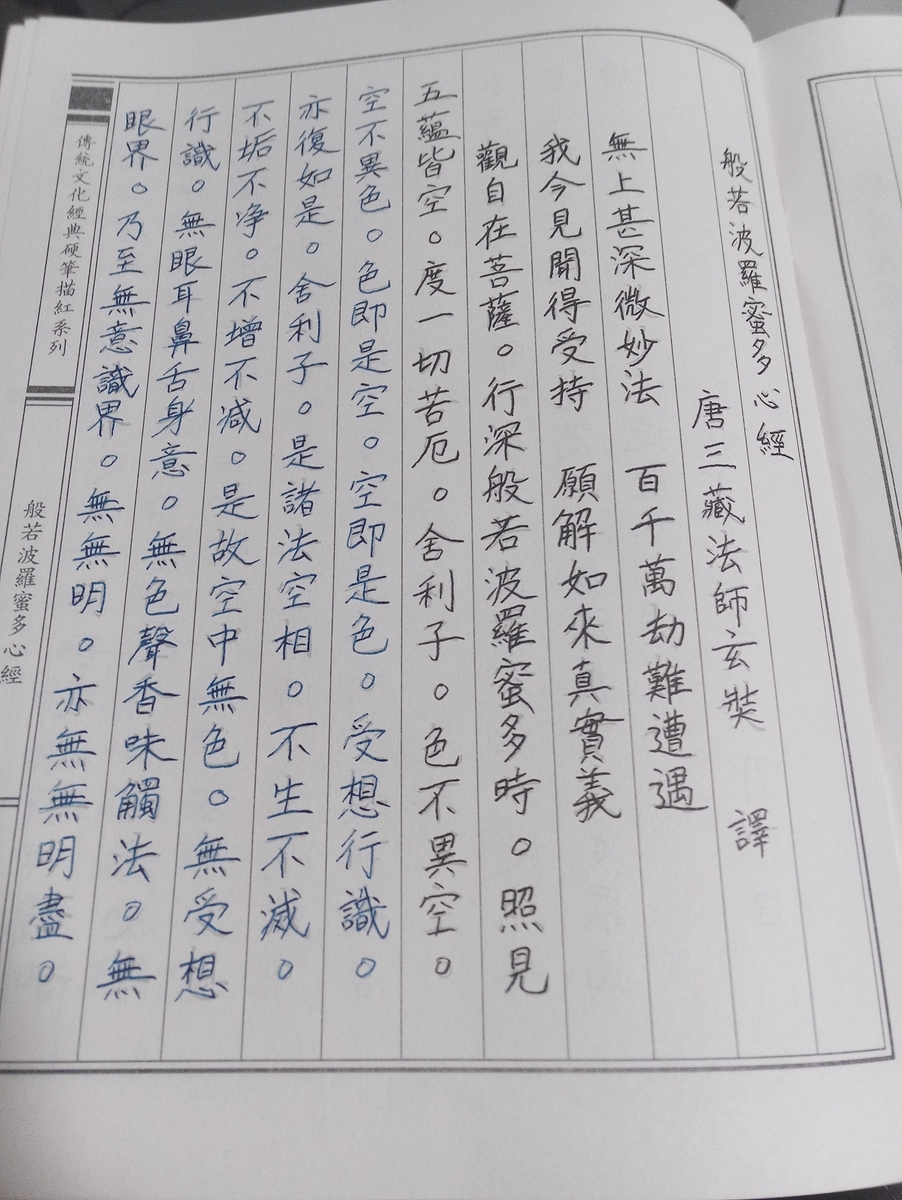 般若波羅蜜多心經
唐三藏法師玄奘 譯
無上甚深微妙法 百千萬劫難遭遇
我今見聞得受持 願解如來真實義
觀自在菩薩。行深般若波羅蜜多時。照見
五蘊皆空。度一切苦厄。舍利子。色不異空。
空不異色。色即是空。空即是色。受想行識。
亦復如是。舍利子。是諸法空相。不生不滅。
不垢不净。不增不减。是故空中無色。無受想
行識。無眼耳鼻舌身意。無色聲香味觸法。無
眼界。乃至無意識界。無無明。亦無無明盡。
傳統文化經典硬筆描紅系列
般若波羅蜜多心經